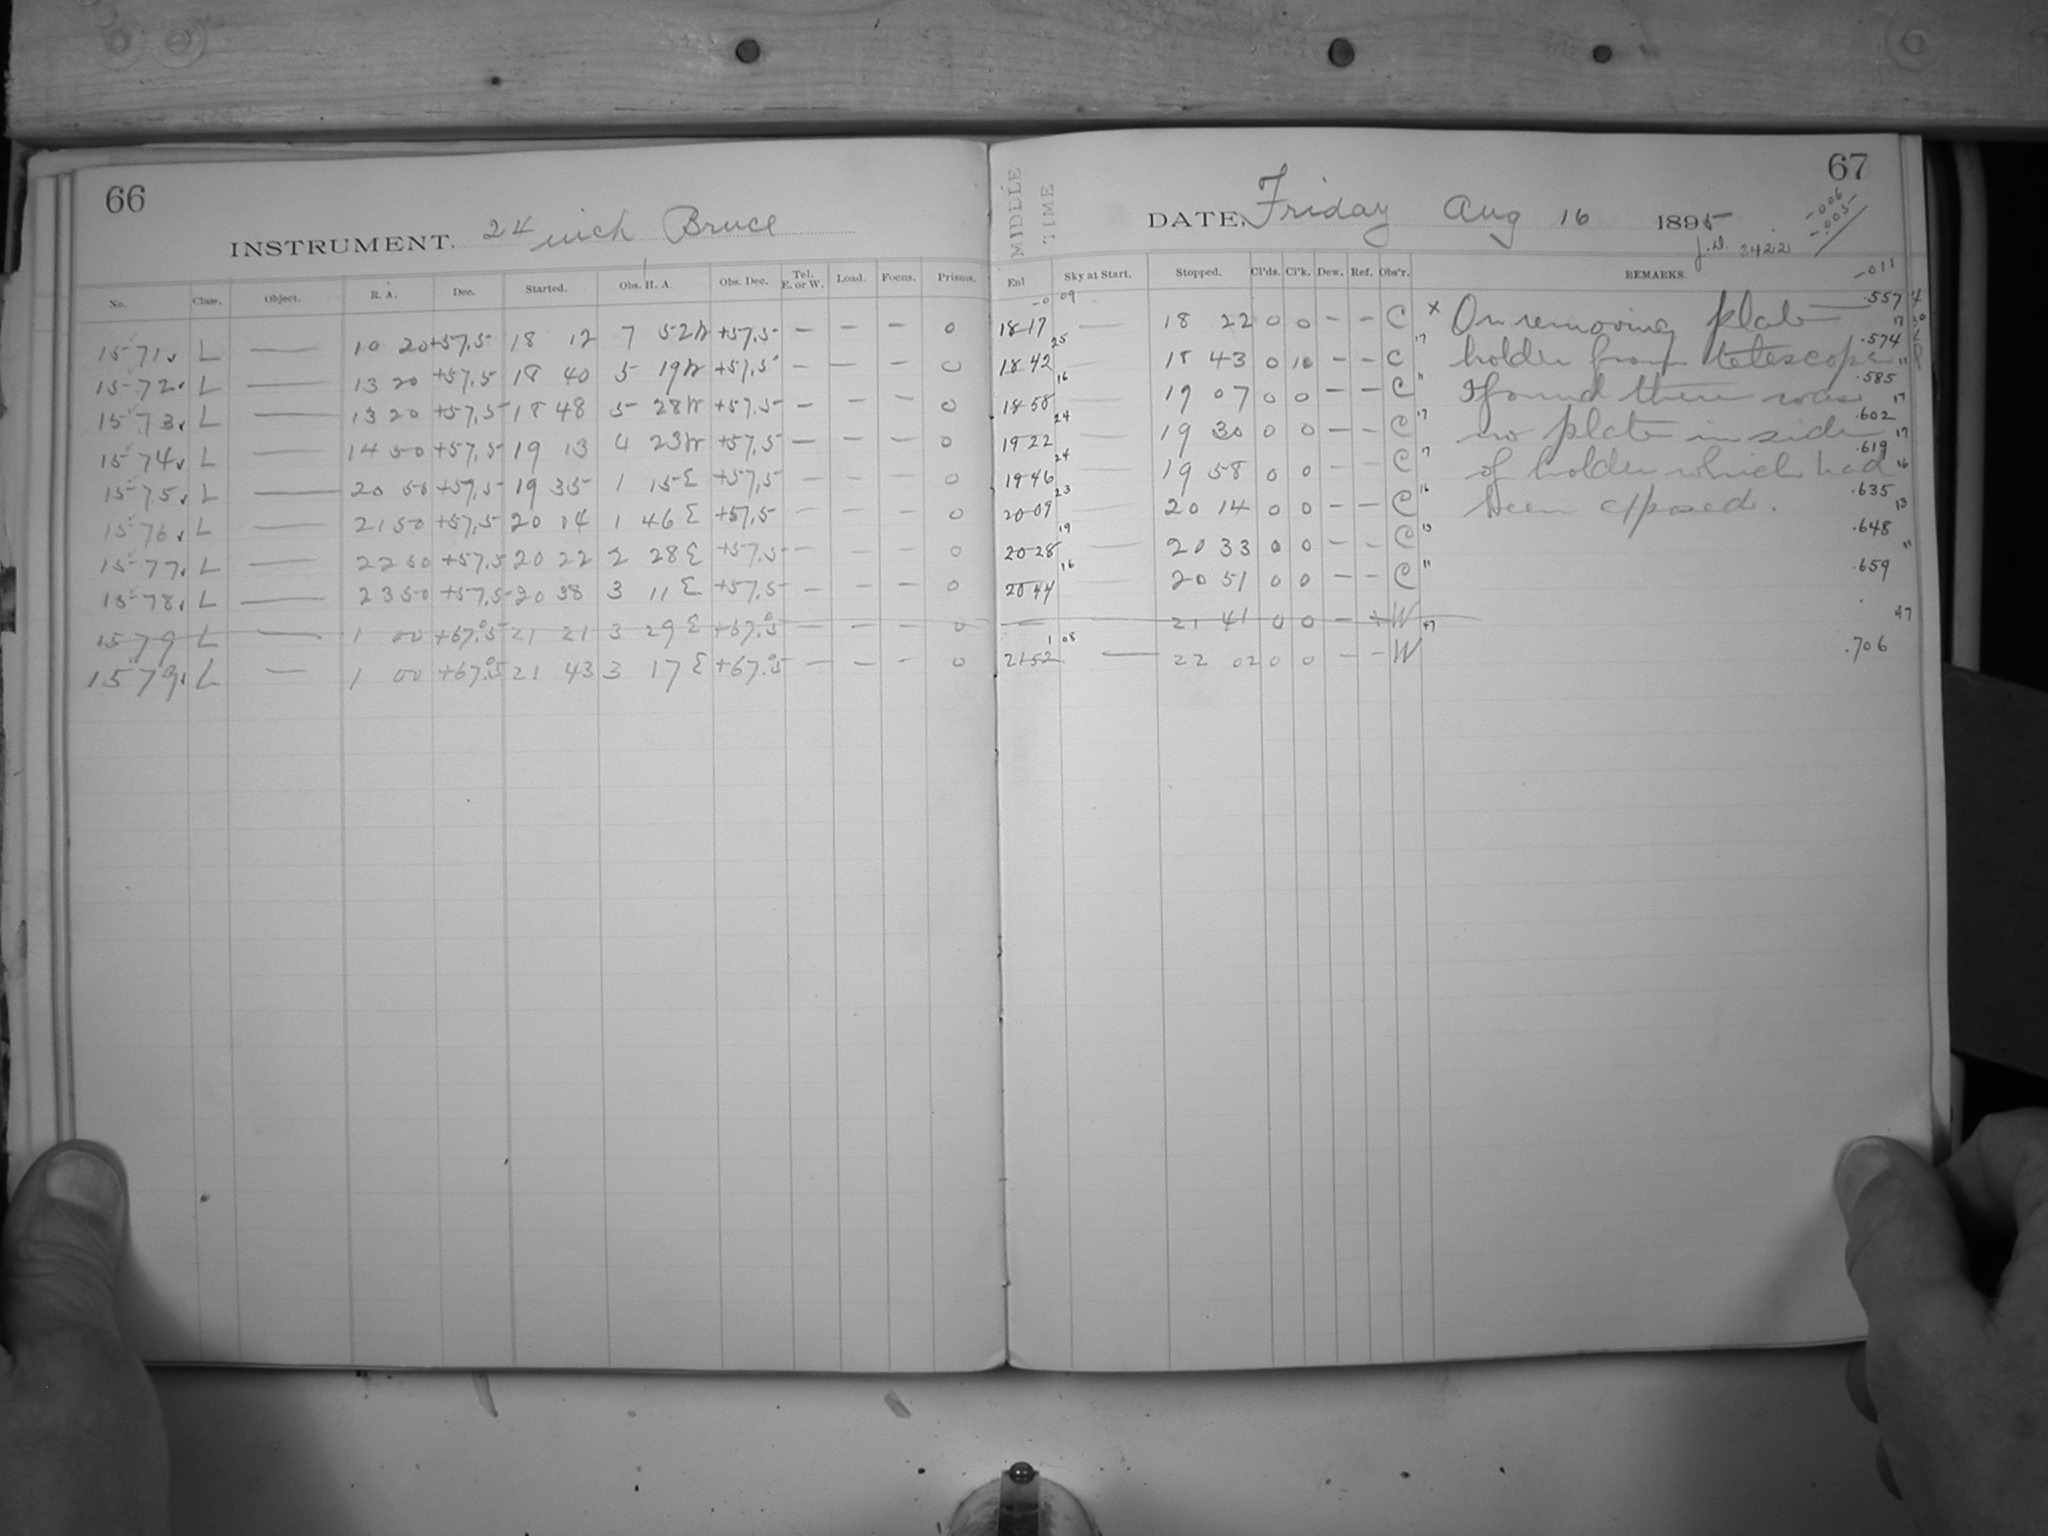 66
INSTRUMENT. 24 inch Bruce
No. Class. Object. R. A. Dec. Started. Obs. H. A. Obs. Dec. Tel. E. or W. Load. Focus. Prisms.
1571 L — 10 20 +57.5 18 12 7 52W +57.5 — — — 0
1572 L — 13 20 +57.5 18 40 5 19W +57.5 — — — 0
1573 L — 13 20 +57.5 18 48 5 28W +57.5 — — — 0
1574 L — 14 50 +57.5 19 13 4 23W +57.5 — — — 0
1575 L — 20 50 +57.5 19 35 1 15E +57.5 — — — 0
1576 L — 21 50 +57.5 20 04 1 46E +57.5 — — — 0
1577 L — 22 50 +57.5 20 22 2 28E +57.5 — — — 0
1578 L — 23 50 +57.5 20 38 3 11E +57.5 — — — 0
1579 L — 1 00 +67.5 21 21 3 29E +67.5 — — — 0
1579 L — 1 00 +67.5 21 43 3 17E +67.5 — — — 0
67
MIDDLE TIME
DATE, Friday Aug 16 1895
J.D. 3422
-006
-.005
-011
Ex1 Sky at Start. Stopped. Cl'ds. Cl'k. Dew. Ref. Obs'r. REMARKS.
18 17 — 18 22 0 0 — — C x On removing plate .557
18 42 — 18 43 0 10 — — C holder from telescope .574
18 58 — 19 07 0 0 — — C I found there was .585
19 22 — 19 30 0 0 — — C no plate inside .602
19 46 — 19 58 0 0 — — C of holder which had .619
20 09 — 20 14 0 0 — — C been exposed. .635
20 28 — 20 33 0 0 — — C .648
20 44 — 20 51 0 0 — — C .659
— 21 41 0 0 — W 47
21 52 — 22 02 0 0 — — W .706